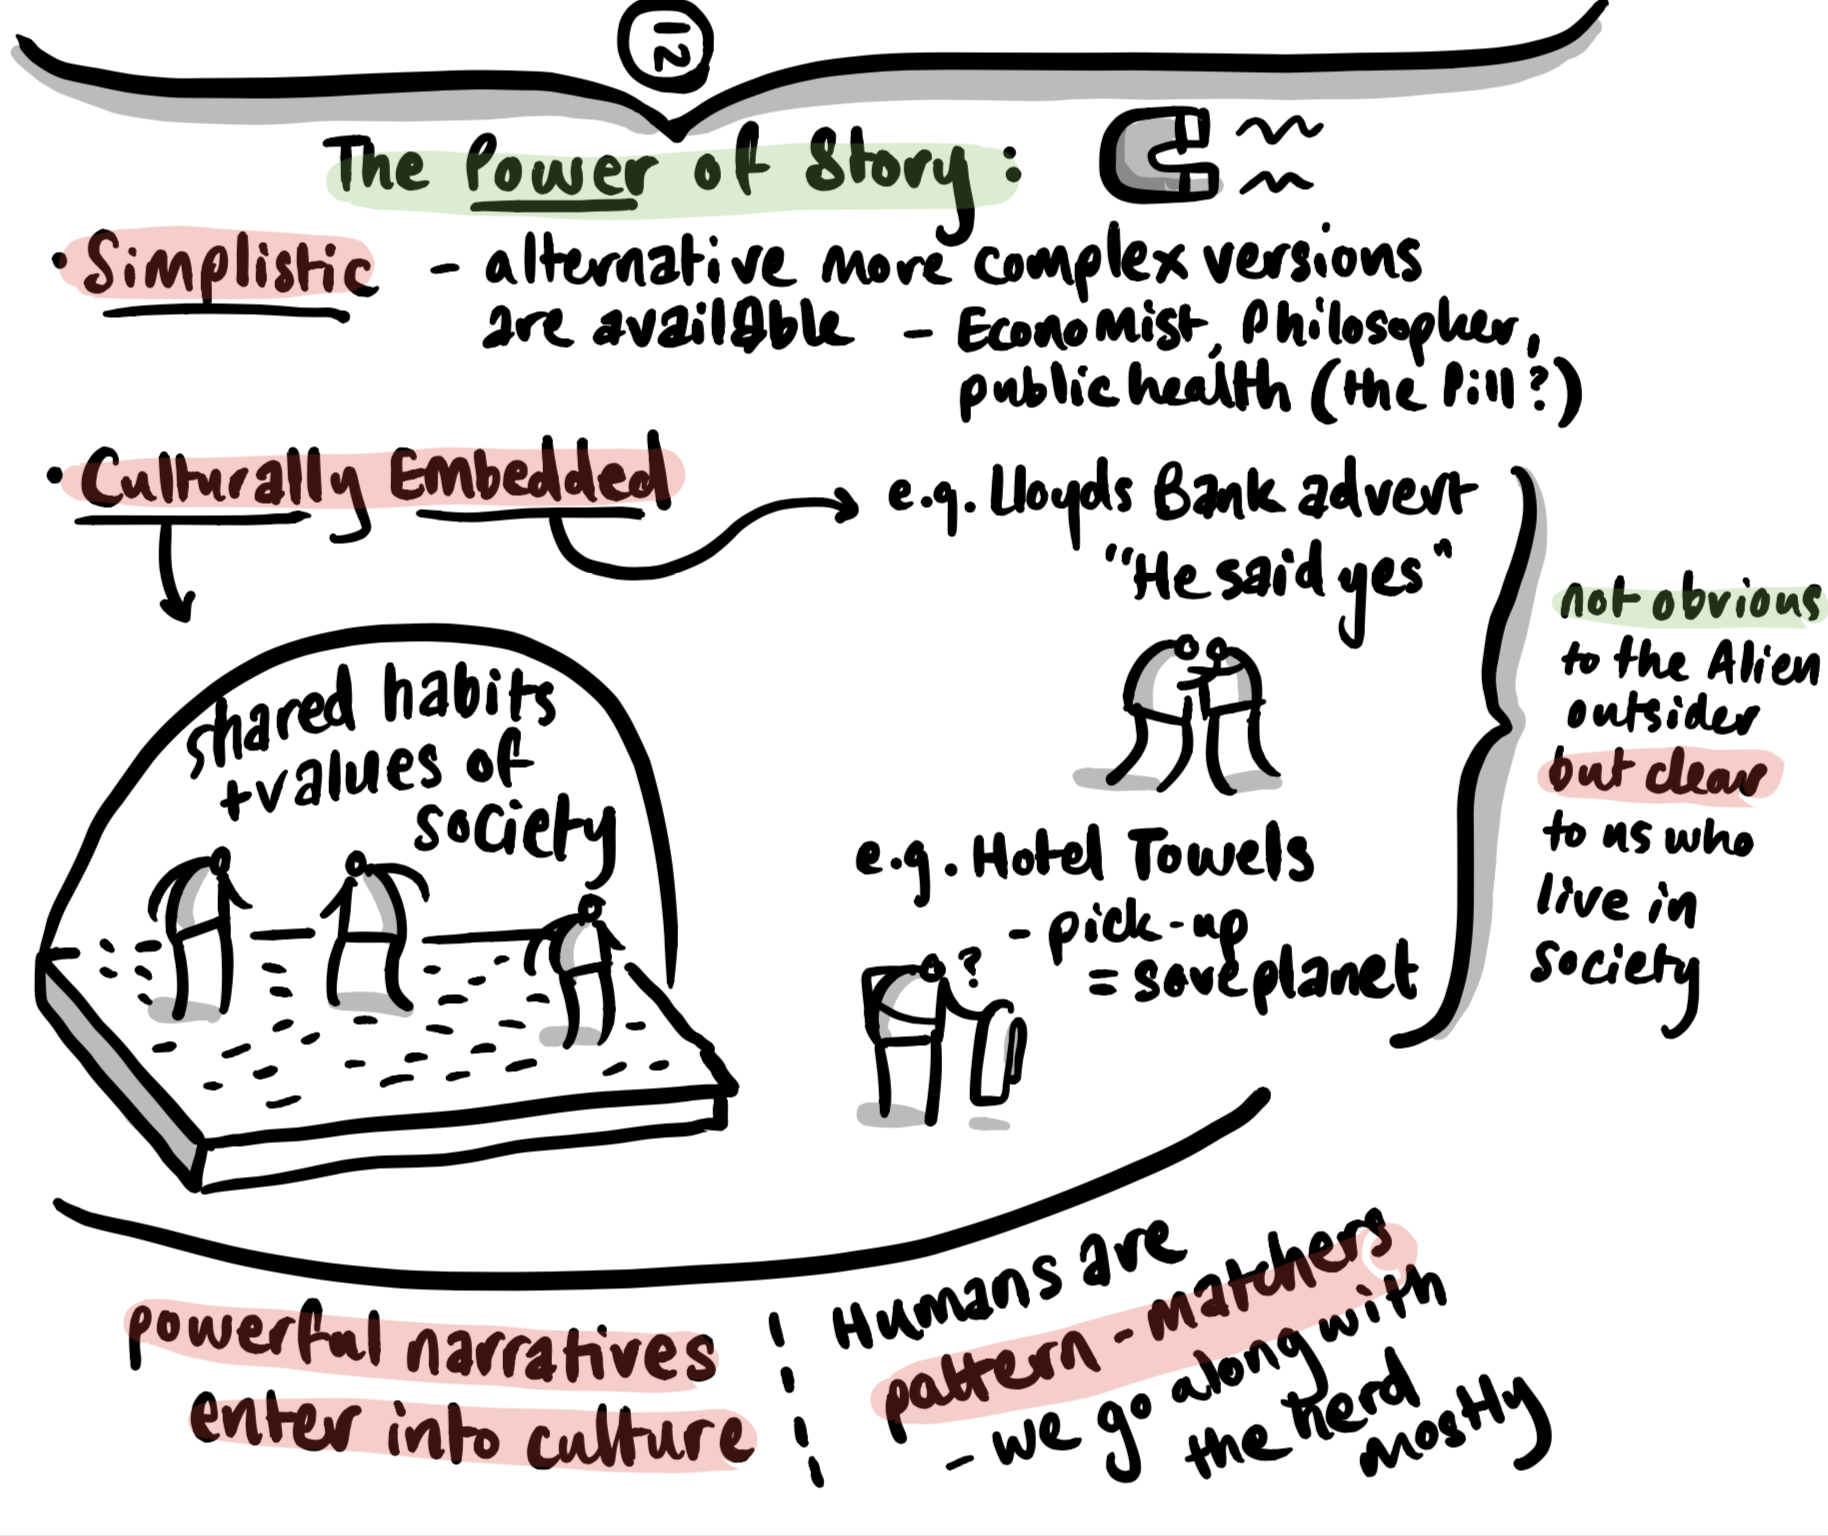 12
The Power of Story:
• Simplistic - alternative more complex versions
are available - Economist, Philosopher,
public health (the Pill?)
• Culturally Embedded
e.g. Lloyds Bank advert
"He said yes"
shared habits
+ values of
society
e.g. Hotel Towels
- pick-up
= save planet
?
not obvious
to the Alien
outsider
but clear
to us who
live in
society
powerful narratives
enter into culture
Humans are
pattern-matchers
- we go along with
the herd
mostly